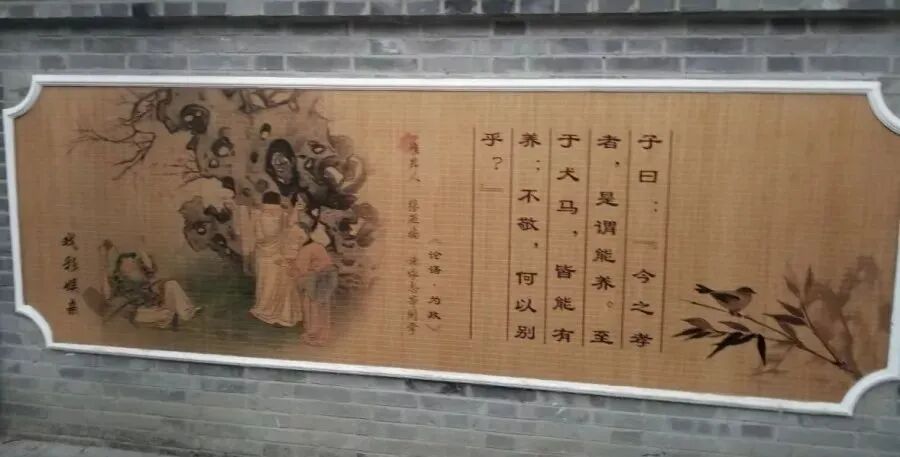 子曰：『今之孝
者，是谓能养。至
于犬马，皆能有
养；不敬，何以别
乎？』
《论语·为政》
戏彩娱亲